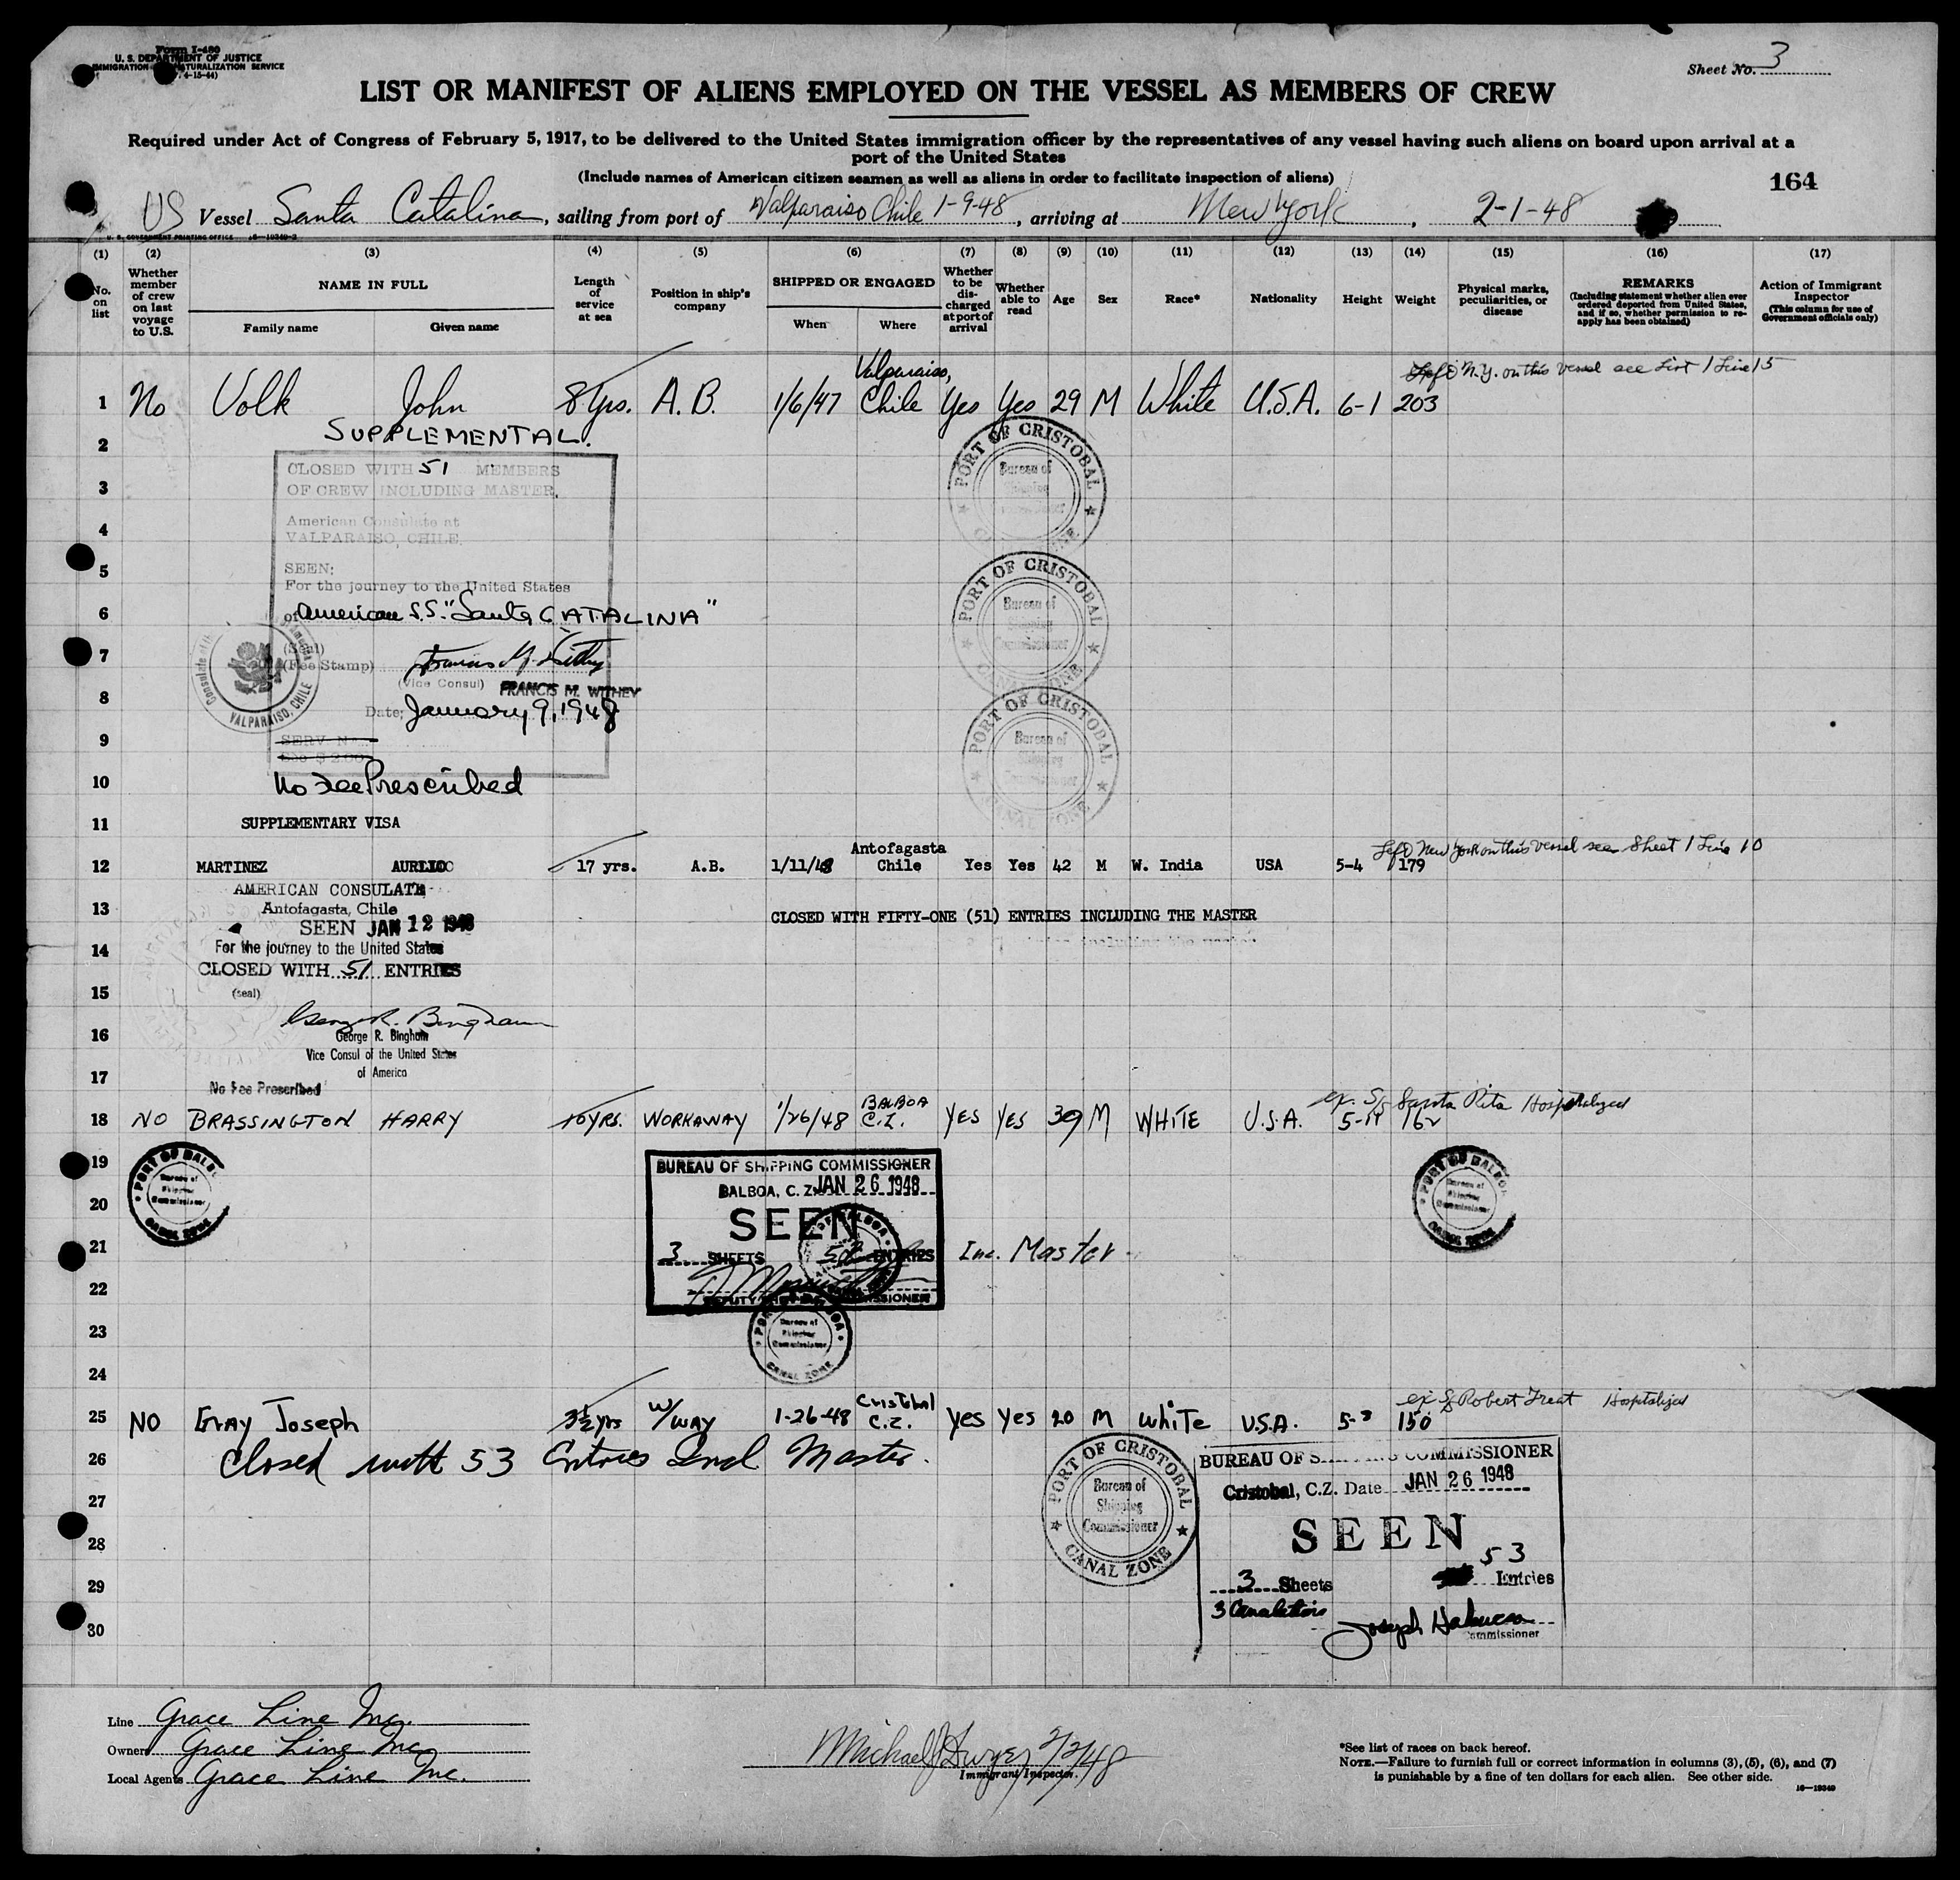 Form I-480
U. S. DEPARTMENT OF JUSTICE
IMMIGRATION NATURALIZATION SERVICE
4-15-44)
Sheet No. 3
LIST OR MANIFEST OF ALIENS EMPLOYED ON THE VESSEL AS MEMBERS OF CREW
Required under Act of Congress of February 5, 1917, to be delivered to the United States immigration officer by the representatives of any vessel having such aliens on board upon arrival at a
port of the United States
(Include names of American citizen seamen as well as aliens in order to facilitate inspection of aliens)
164
US Vessel Santa Catalina, sailing from port of Valparaiso Chile 1-9-48, arriving at New York, 2-1-48
U. S. GOVERNMENT PRINTING OFFICE 16—19349-2
(1) (2) (3) (4) (5) (6) (7) (8) (9) (10) (11) (12) (13) (14) (15) (16) (17)
No. on list
Whether member of crew on last voyage to U.S.
NAME IN FULL
Family name Given name
Length of service at sea
Position in ship's company
SHIPPED OR ENGAGED
When Where
Whether to be discharged at port of arrival
Whether able to read
Age
Sex
Race*
Nationality
Height
Weight
Physical marks, peculiarities, or disease
REMARKS
(Including statement whether alien ever ordered deported from United States, and if so, whether permission to re-apply has been obtained)
Action of Immigrant Inspector
(This column for use of Government officials only)
Left N.Y. on this vessel see List 1 Line 15
1 No Volk John 8 yrs. A.B. 1/6/47 Valparaiso, Chile Yes Yes 29 M White U.S.A. 6-1 203
SUPPLEMENTAL.
2
CLOSED WITH 51 MEMBERS
3
OF CREW INCLUDING MASTER.
American Consulate at
4
VALPARAISO, CHILE.
5
SEEN:
For the journey to the United States
6
of American S.S. "Santa CATALINA"
7
(Seal)
(Fee Stamp) Francis M. Withey
(Vice Consul) FRANCIS M. WITHEY
8
Date; January 9, 1948
9
SERV. No.
Fee $2.00
10
No Fee Prescribed
Consulate of
VALPARAISO, CHILE
PORT OF CRISTOBAL
Bureau of
Shipping
CANAL ZONE
PORT OF CRISTOBAL
Bureau of
Shipping
Commissioner
CANAL ZONE
PORT OF CRISTOBAL
Bureau of
Shipping
Commissioner
CANAL ZONE
11 SUPPLEMENTARY VISA
Left New York on this vessel see Sheet 1 Line 10
12 MARTINEZ AURLIO 17 yrs. A.B. 1/11/48 Antofagasta Chile Yes Yes 42 M W. India USA 5-4 179
AMERICAN CONSULATE
13 Antofagasta, Chile CLOSED WITH FIFTY-ONE (51) ENTRIES INCLUDING THE MASTER
SEEN JAN 12 1948
14 For the journey to the United States
CLOSED WITH 51 ENTRIES
15 (seal)
George R. Bingham
16 George R. Bingham
Vice Consul of the United States
of America
17
No Fee Prescribed
ex. S/S Santa Rita Hospitalized
18 NO BRASSINGTON HARRY 10 YRS. WORKAWAY 1/26/48 BALBOA C.Z. YES YES 39 M WHITE U.S.A. 5-11 162
19
PORT OF BALBO
Bureau of
Shipping
Commissioner
CANAL ZONE
BUREAU OF SHIPPING COMMISSIONER
BALBOA, C. Z. JAN 26 1948
20
SEEN
21
3 SHEETS 52 ENTRIES Inc. Master
22
DEPUTY SHIPPING COMMISSIONER
PORT OF BALBO
Bureau of
Shipping
Commissioner
CANAL ZONE
23
Bureau of
Shipping
Commissioner
CANAL ZONE
24
ex SS Robert Treat Hospitalized
25 NO Gray Joseph 3½ yrs W/WAY 1-26-48 Cristobal C.Z. Yes Yes 20 M White U.S.A. 5-8 150
26 Closed with 53 Entries Incl Master.
27
28
29
30
PORT OF CRISTOBAL
Bureau of
Shipping
Commissioner
CANAL ZONE
BUREAU OF SHIPPING COMMISSIONER
Cristobal, C.Z. Date JAN 26 1948
SEEN
53
3 Sheets Entries
Joseph
Commissioner
Line Grace Line Inc.
Owners Grace Line Inc.
Local Agents Grace Line Inc.
Michael J Dwyer 2/2/48
Immigrant Inspector.
*See list of races on back hereof.
NOTE.—Failure to furnish full or correct information in columns (3), (5), (6), and (7)
is punishable by a fine of ten dollars for each alien. See other side.
16—19349